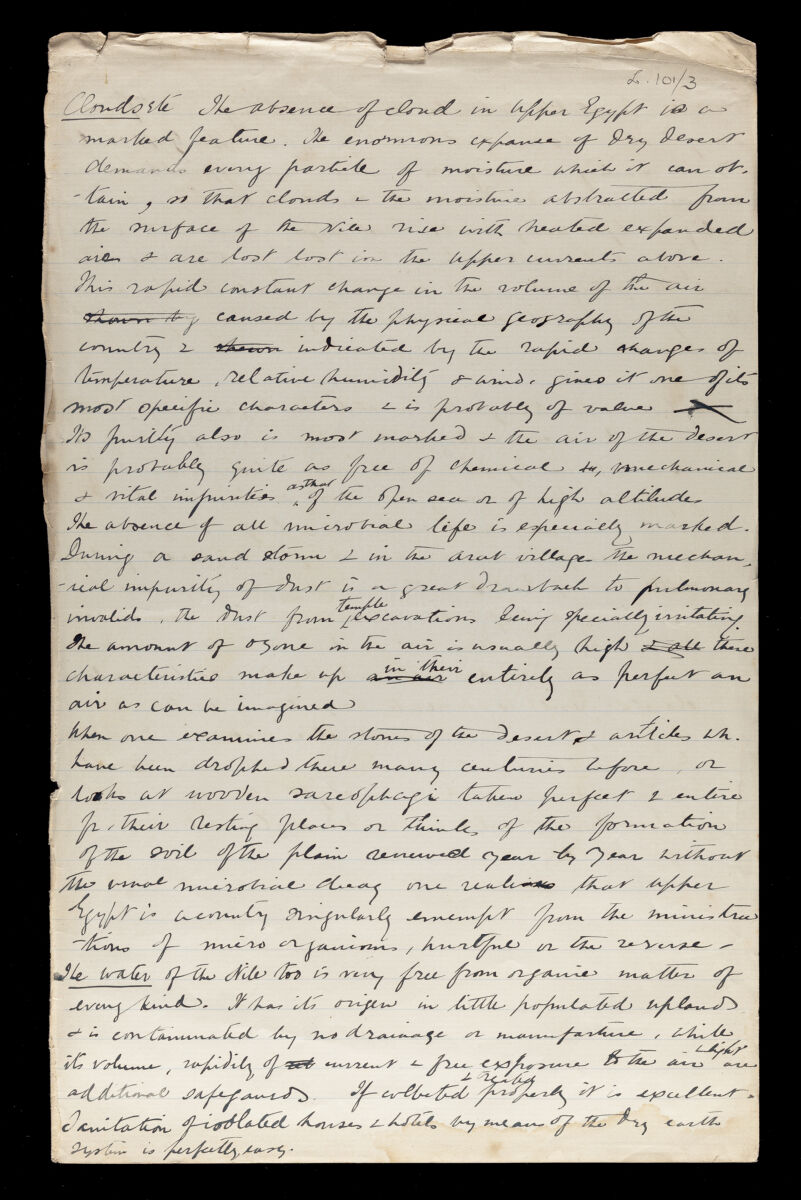 L. 101/3
Clouds etc The absence of cloud in Upper Egypt is a
marked feature. The enormous expanse of dry desert
demands every particle of moisture which it can ob-
-tain, so that clouds & the moisture abstracted from
the surface of the Nile rise with heated expanded
air & are lost lost in the upper currents above.
This rapid constant change in the volume of the air
shown by caused by the physical geography of the
country & shown indicated by the rapid changes of
temperature, relative humidity & wind, gives it one of its
most specific characters & is probably of value
Its purity also is most marked & the air of the desert
is probably quite as free of chemical, mechanical
& vital impurities as that of the open sea or of high altitudes
The absence of all microbial life is especially marked.
During a sand storm & in the arab village the mechan-
-ical impurity of dust is a great drawback to pulmonary
invalids, the dust from temple excavations being specially irritating
The amount of ozone in the air is usually high & all these
characteristics make up in their entirety as perfect an
air as can be imagined
When one examines the stones of the desert & articles wh.
have been dropped there many centuries before, or
looks at wooden sarcophagi taken perfect & entire
fr. their resting places or thinks of the formation
of the soil of the plain renewed year by year without
the usual microbial decay one realises that upper
Egypt is a country singularly exempt from the ministra
-tions of micro organisms, hurtful or the reverse -
The water of the Nile too is very free from organic matter of
every kind. It has its origin in little populated uplands
& is contaminated by no drainage or manufacture, while
its volume, rapidity of current & free exposure to the air & light are
additional safeguards. If collected & treated properly it is excellent.
Sanitation of isolated houses & hotels by means of the dry earth
system is perfectly easy.